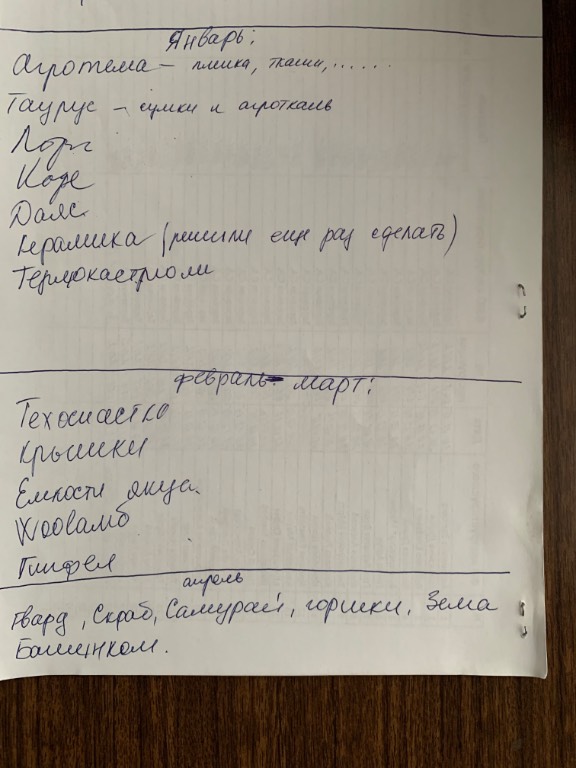 Январь:
Агротема – пленка, ткани, ......
Таурус – сумки и агроткань
Лори
Коде
Даяс
Керамика (решили еще раз сделать)
Термокастрюли
февраль- март:
Техоснастка
Крышки
Емкости акция.
Wooвамб
Гринфел
апрель
Гвард, Скраб, Самурай, горшки, Зема
Башинком.